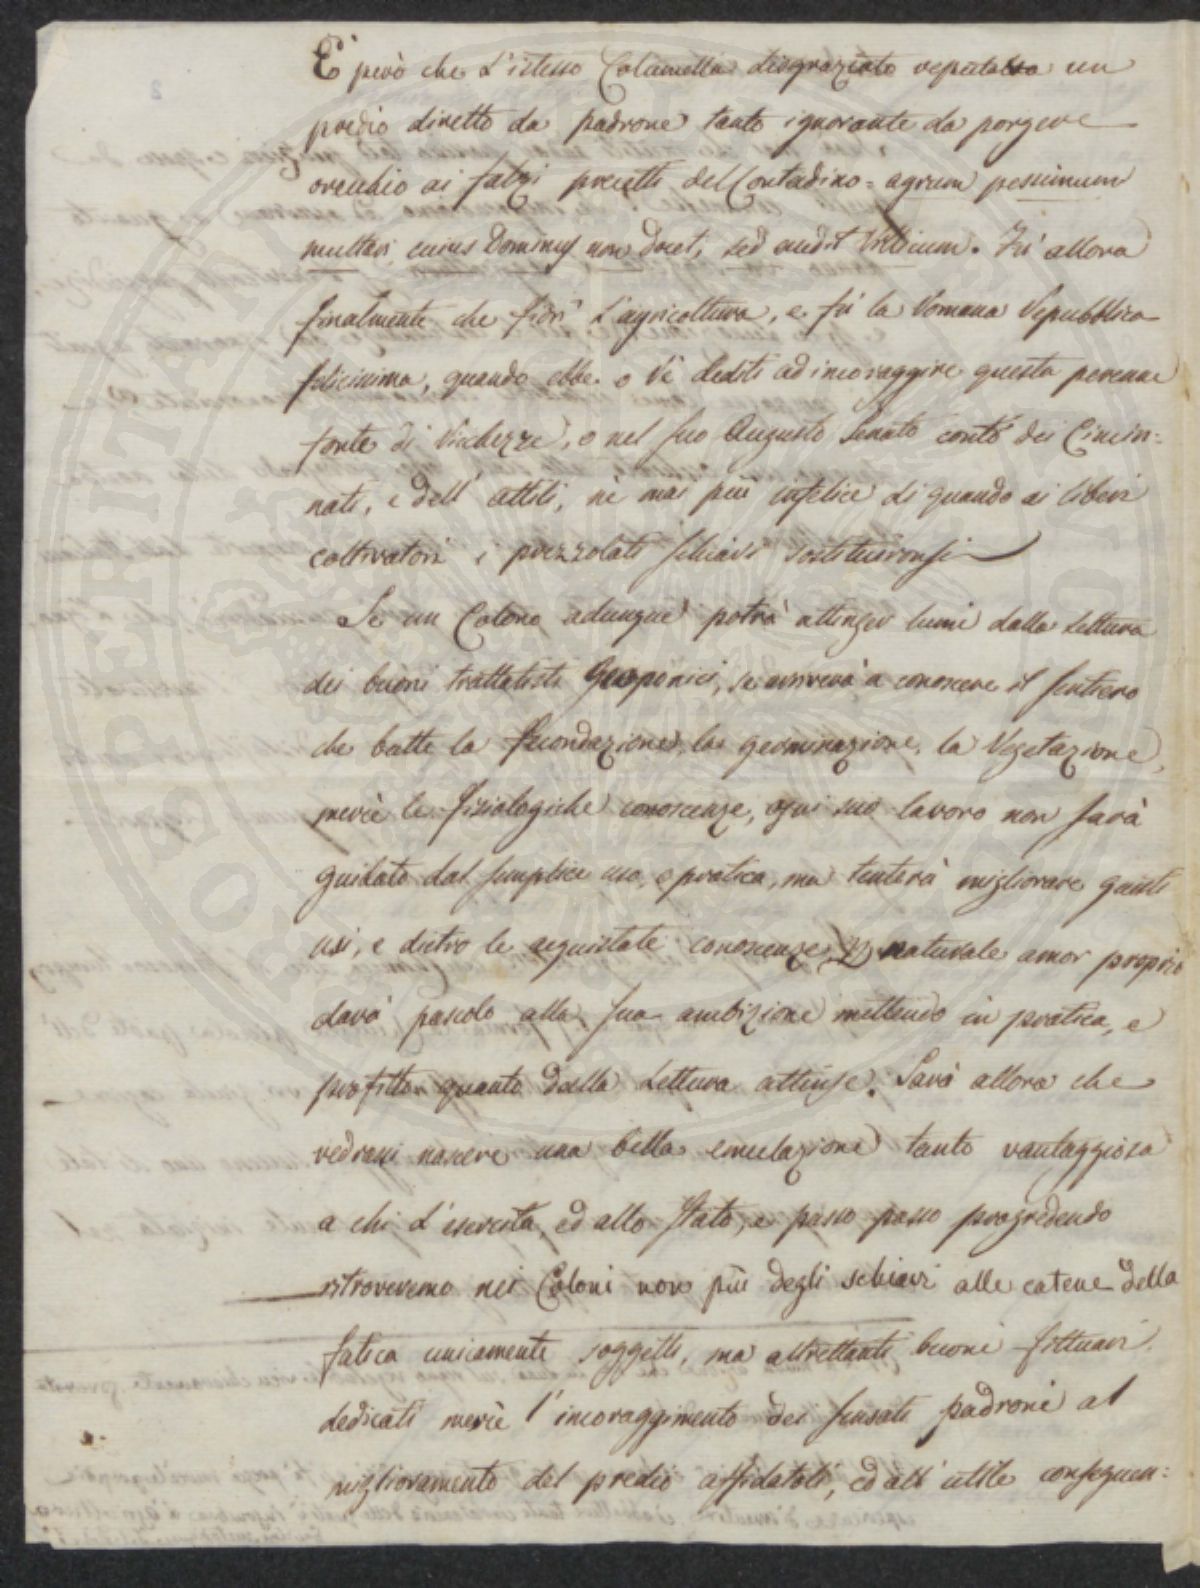 E però che l'istesso Columella disgraziato reputava un
predio diretto da padrone tanto ignorante da porgere
orecchio ai falzi precetti del Contadino = agrum pessimum
multari, cuius Dominus non docet, sed audit Villicum. Fù allora
finalmente che fiorì l'agricoltura, e fù la Romana Repubblica
felicissima, quando ebbe o Rè dediti ad incoraggire questa perenne
fonte di Ricchezze, o nel suo Augusto Senato contò dei Cincin=
nati, e dell' attili, nè mai più infelice di quando ai liberi
coltivatori i prezzolati schiavi sostituironsi
Se un Colono adunque potrà attinger lumi dalla lettura
dei buoni trattatisti Geoponici, se arriverà a conoscere il sentiero
che batte la fecondazione, la germinazione, la Vegetazione,
mercè le fisiologiche conoscenze, ogni suo lavoro non sarà
guidato dal semplice uso, e pratica, ma tenterà migliorare questi
usi, e dietro le acquistate conoscenze naturale amor proprio
darà pascolo alla sua ambizione mettendo in pratica, e
profitto quanto dalla lettura attinse. Sarà allora che
vedrassi nascere una bella emulazione tanto vantaggiosa
a chi l'esercita, ed allo Stato, e passo passo progredendo
ritroveremo nei Coloni non più degli schiavi alle catene della
fatica unicamente soggetti, ma altrettanti buoni fittuari
dedicati mercè l'incoraggimento dei sensati padroni al
miglioramento del predio affidatoli, ed all' utile conseguen=